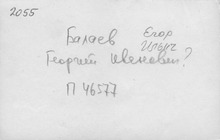 2055
Балаев Егор
Георгий Иванович? Ильич
П 46577